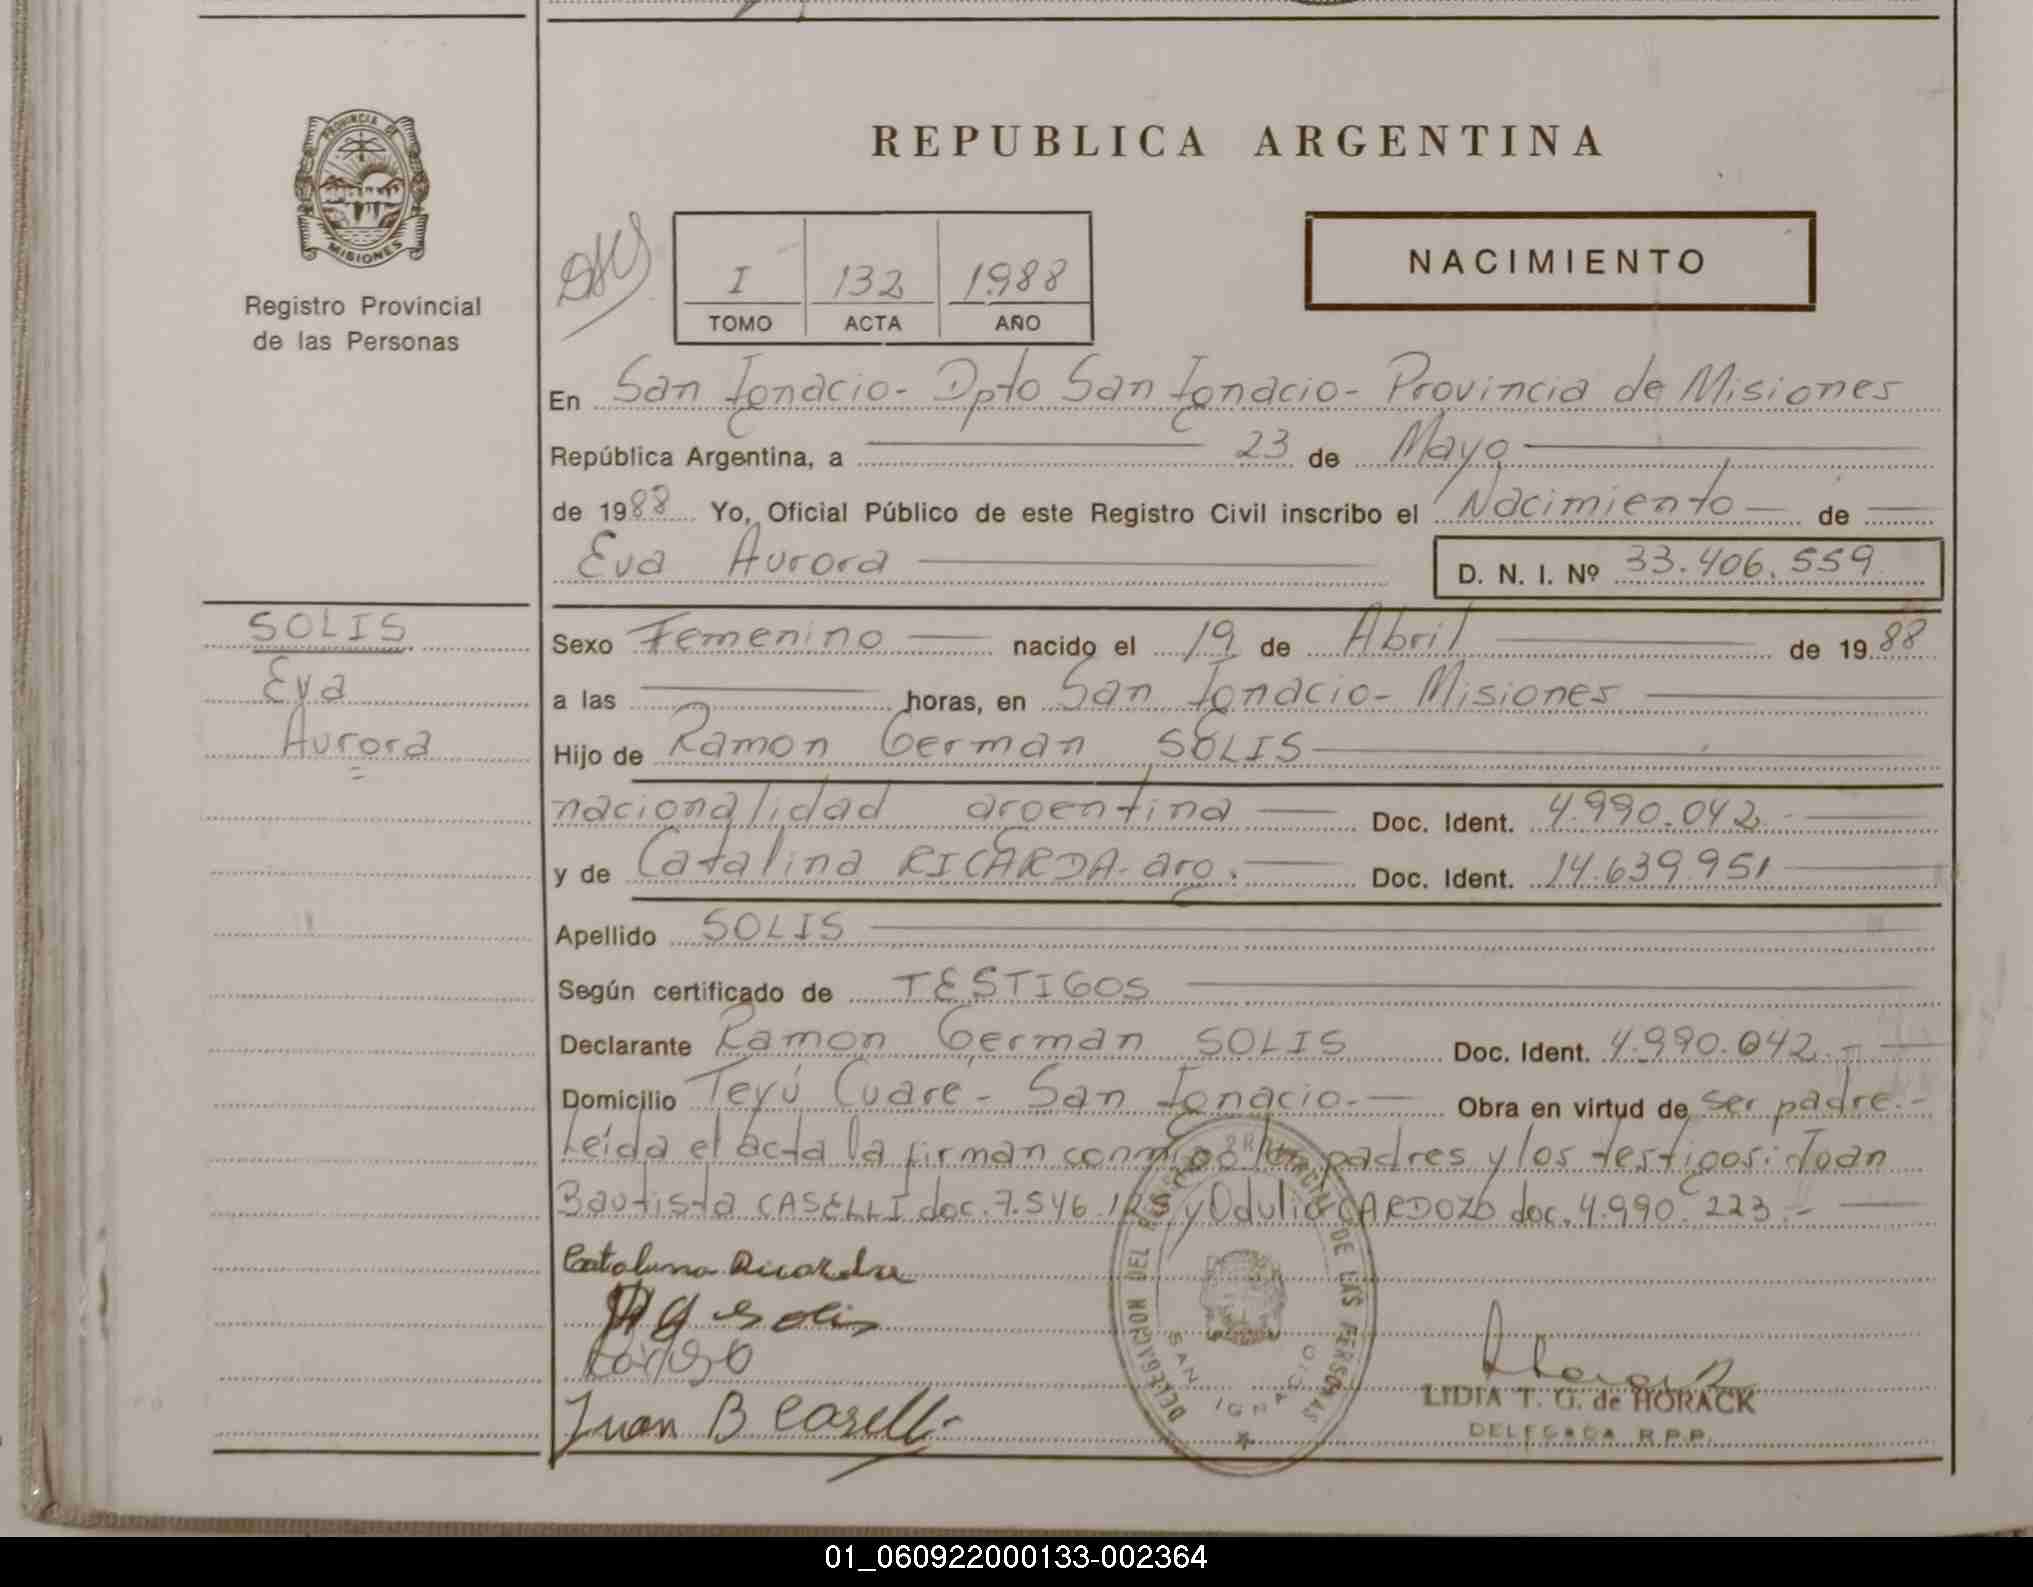 PROVINCIA DE
MISIONES
Registro Provincial
de las Personas
REPUBLICA ARGENTINA
NACIMIENTO
I 132 1988
TOMO ACTA AÑO
En San Ignacio- Dpto San Ignacio- Provincia de Misiones
República Argentina, a 23 de Mayo
de 1988 Yo, Oficial Público de este Registro Civil inscribo el Nacimiento de
Eva Aurora D. N. I. Nº 33.406.559
SOLIS
Eva
Aurora
Sexo Femenino nacido el 19 de Abril de 1988
a las horas, en San Ignacio- Misiones
Hijo de Ramon German SOLIS
nacionalidad argentina Doc. Ident. 4.990.042.-
y de Catalina RICARDA- arg. Doc. Ident. 14.639.951
Apellido SOLIS
Según certificado de TESTIGOS
Declarante Ramon German SOLIS Doc. Ident. 4.990.042.-
Domicilio Teyú Cuaré- San Ignacio.- Obra en virtud de ser padre.-
Leída el acta la firman conmigo los padres y los testigos: Juan
Bautista CASELLI doc. 7.546.125 y Odulio CARDOZO doc. 4.990.223.-
Catalina Ricarda
R G Solis
Juan B Caselli
DELEGACION DEL REGISTRO PROVINCIAL DE LAS PERSONAS
SAN IGNACIO
LIDIA T. G. de HORACK
DELEGADA R.P.P.
01_060922000133-002364